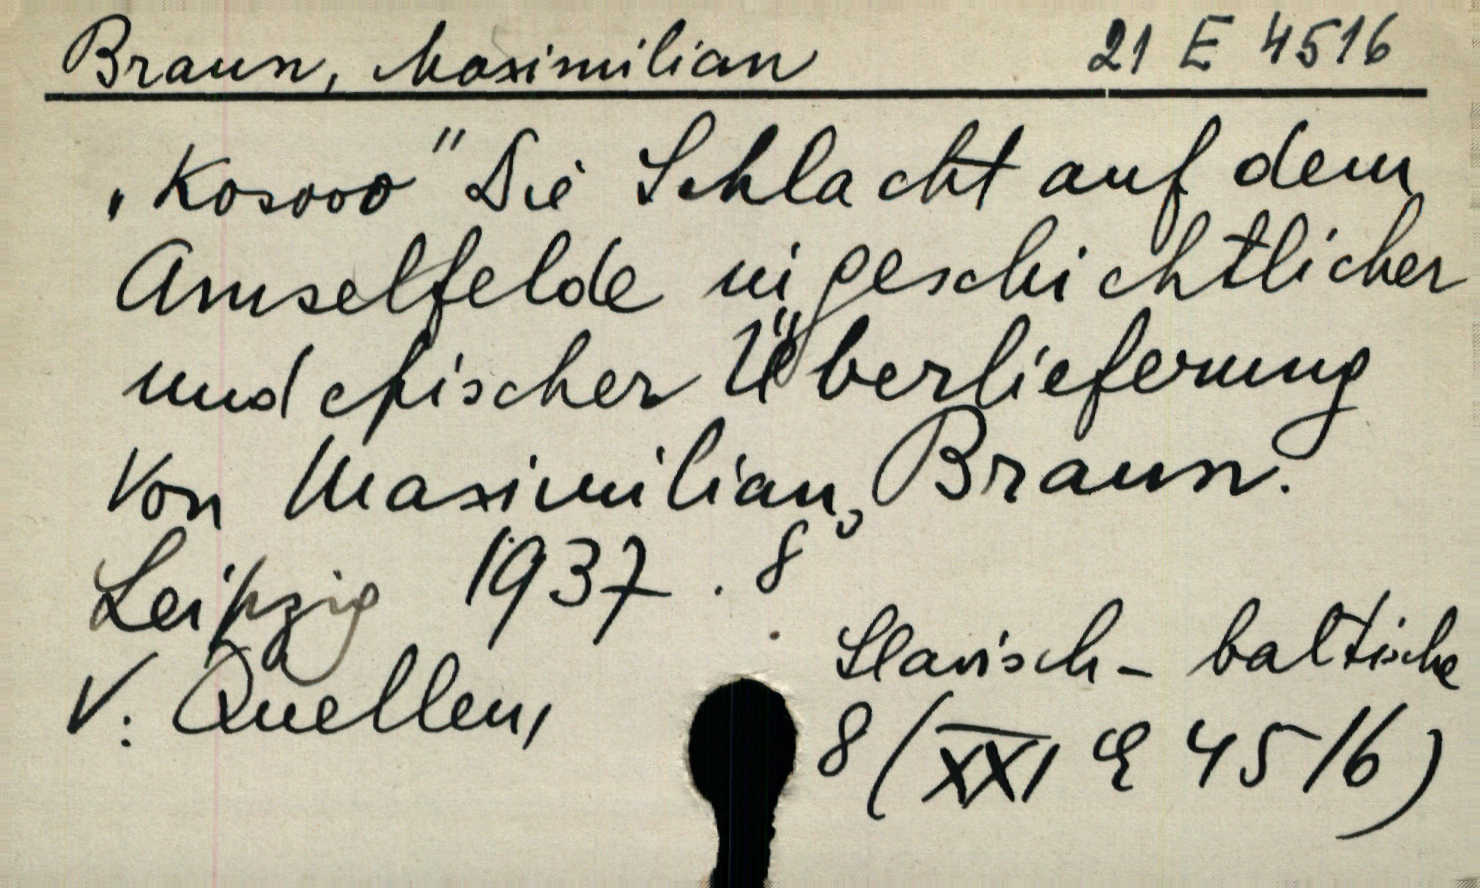 Braun, Maximilian 21 E 4516
„Kosovo" Die Schlacht auf dem
Amselfelde in geschichtlicher
und epischer Überlieferung
Von Maximilian Braun.
Leipzig 1937. 8°
V. Quellen, Slavisch-baltische
8 (XXI E 4516)